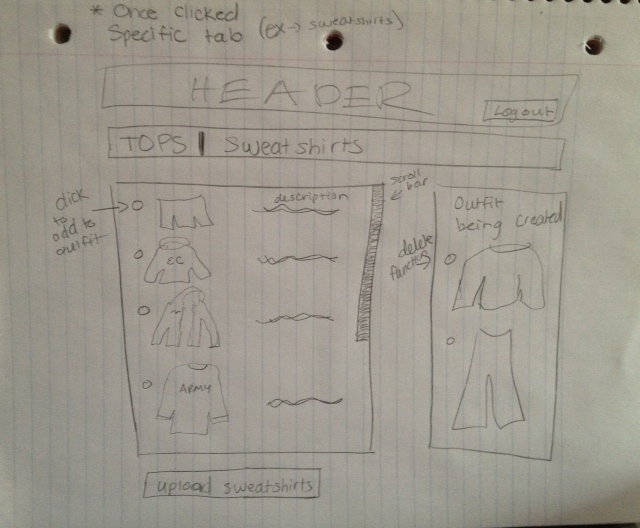 * Once clicked
Specific tab (ex→ sweatshirts)
HEADER
Logout
TOPS | Sweatshirts
click
to
add to
outfit
description
scroll
bar
EC
ARMY
delete
function
Outfit
being created
upload sweatshirts